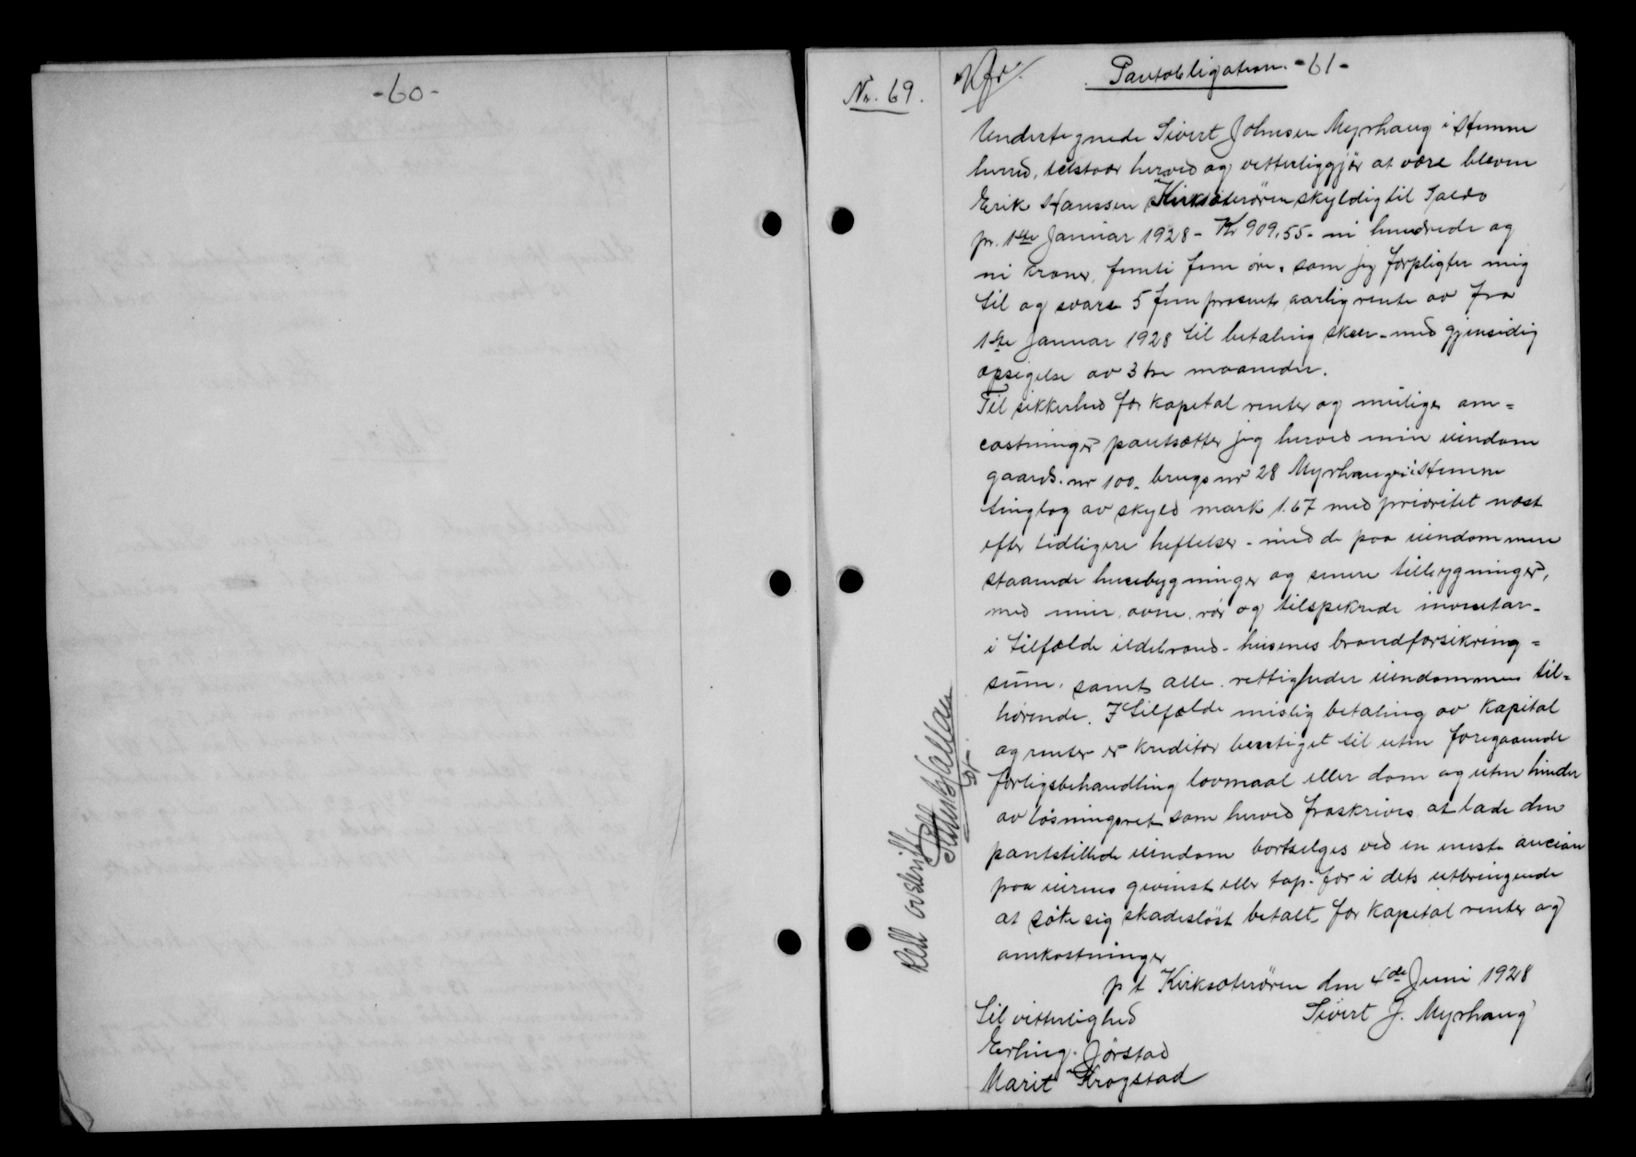 -60-
Nr. 69.
Pantobligation. -61-
Undertegnede Sivert Johnsen Myrhaug i Hemne
herred, tilstaar herved og vetterliggjör at være bleven
Erik Hanssen Kirksæterören skyldig til Saldo
pr. 1ste Januar 1928 - Kr 909,55 - ni hundrede og
ni kroner, femti fem öre, som jeg forpligter mig
til og svare 5 fem prosent aarlig rente av fra
1ste Januar 1928 til betaling skeer - med gjensidig
opsigelse av 3 tre maaneder.
Til sikkerhed for kapital renter og mulige om=
costninger pantsætter jeg herved min eiendom
gaards. nr 100. brugs nr 28 Myrhaugen i Hemne
tinglag av skyld mark 1.67 med prioritet næst
efter tidligere heftelser - med de paa eiendommen
staaende husebygninger og senere tilbygninger,
med mur, ovne, rör og tilspikrede inventar -
i tilfælde ildebrand - husenes brandforsikring=
sum, samt alle rettigheder eiendommen til=
hørende. I tilfælde mislig betaling av kapital
og renter er kreditor berettiget til uten foregaaende
forligsbehandling lovmaal eller dom og uten hinder
av løsningsret som herved fraskrives at lade den
pantstillede eiendom bortselges ved en enest aucion
paa eiernes gevinst eller tap - for i dets utbringende
at söke sig skadeslöst betalt for kapital renter og
omkostninger
p t Kirksæterören den 4de Juni 1928
Til vitterlighed Sivert J. Myrhaug
Erling Jörstad
Marit Krogstad
Rett avskrift